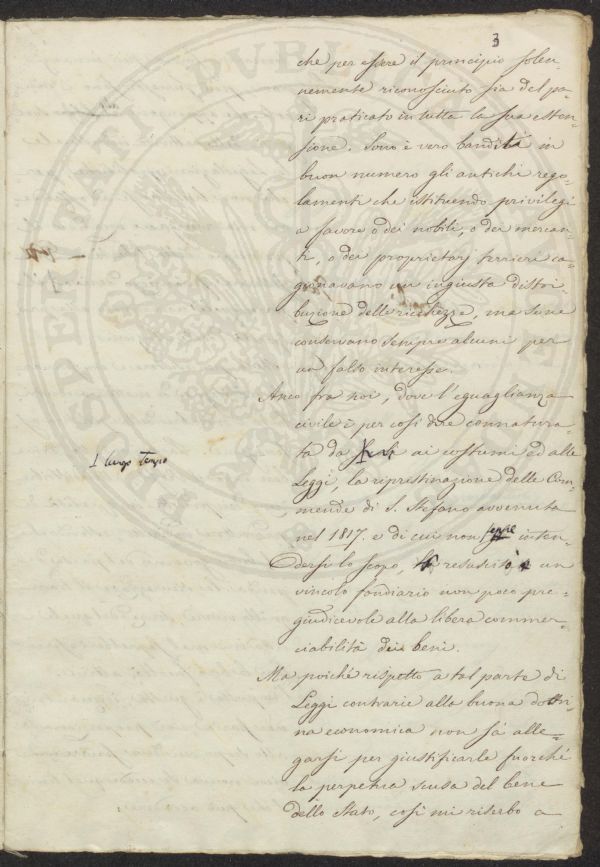 3
che per essere il principio solen-
nemente riconosciuto sia del pa-
ri praticato in tutta la sua esten-
sione. Sono è vero banditi in
buon numero gli antichi rego-
lamenti che istituendo privilegi
a favore o dei nobili, o dei mercan-
ti, o dei proprietarj terrieri ca-
gionavano un ingiusta distri-
buzione delle ricchezze, ma se ne
conservano sempre alcuni per
un falso interesse.
Anco fra noi, dove l'eguaglianza
civile è per così dire connatura-
ta da ai costumi ed alle
I lungo tempo
Leggi, la ripristinazione delle Com-
mende di S. Stefano avvenuta
nel 1817. e di cui non inten-
dersi lo scopo, resuscitò un
vincolo fondiario non poco pre-
giudicevole alla libera commer-
ciabilità dei beni.
Ma poiché rispetto a tal parte di
Leggi contrarie alla buona dottri-
na economica non sà alle-
garsi per giustificarle fuorché
la perpetua scusa del bene
dello Stato, così mi riserbo a